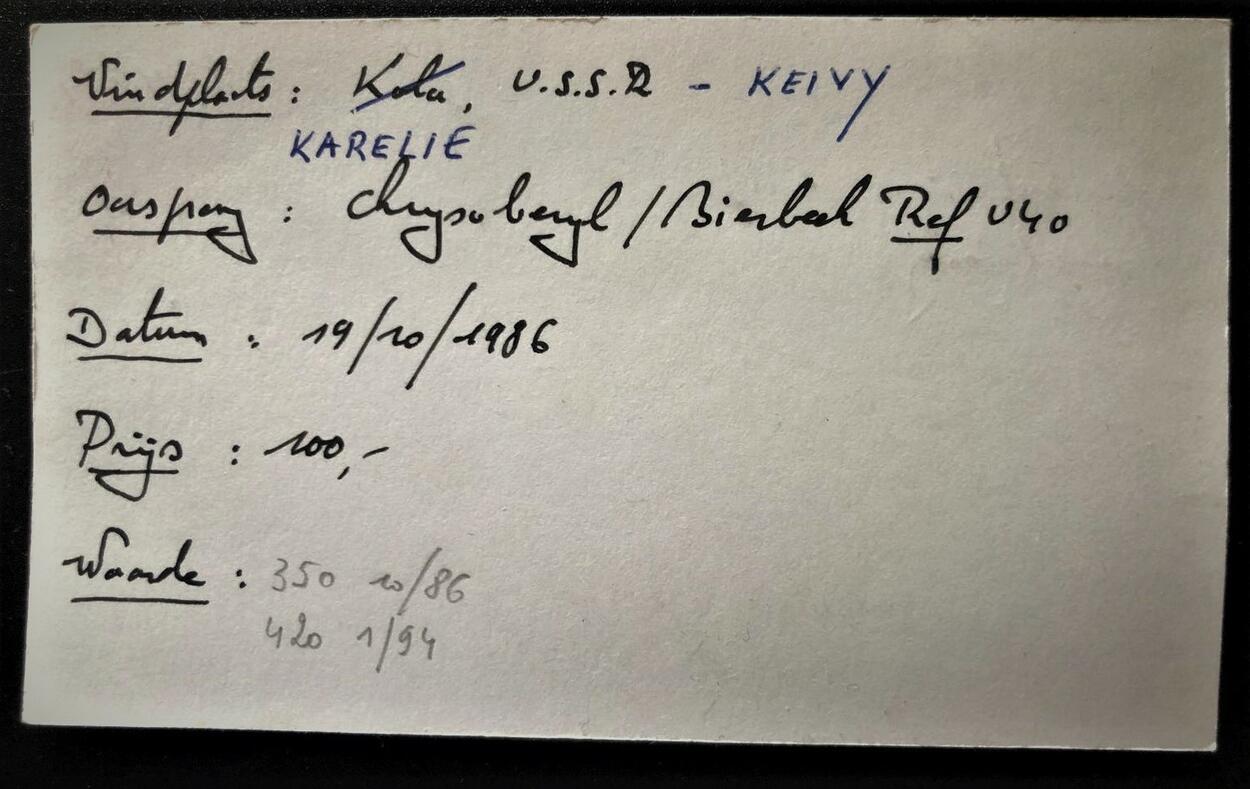 Vindplaats : Kola, U.S.S.R - KEIVY
KARELIE
Oorsprong : Chrysoberyl / Bierbeek Ref U40
Datum : 19/10/1986
Prijs : 100,-
Waarde : 350 10/86
420 1/94